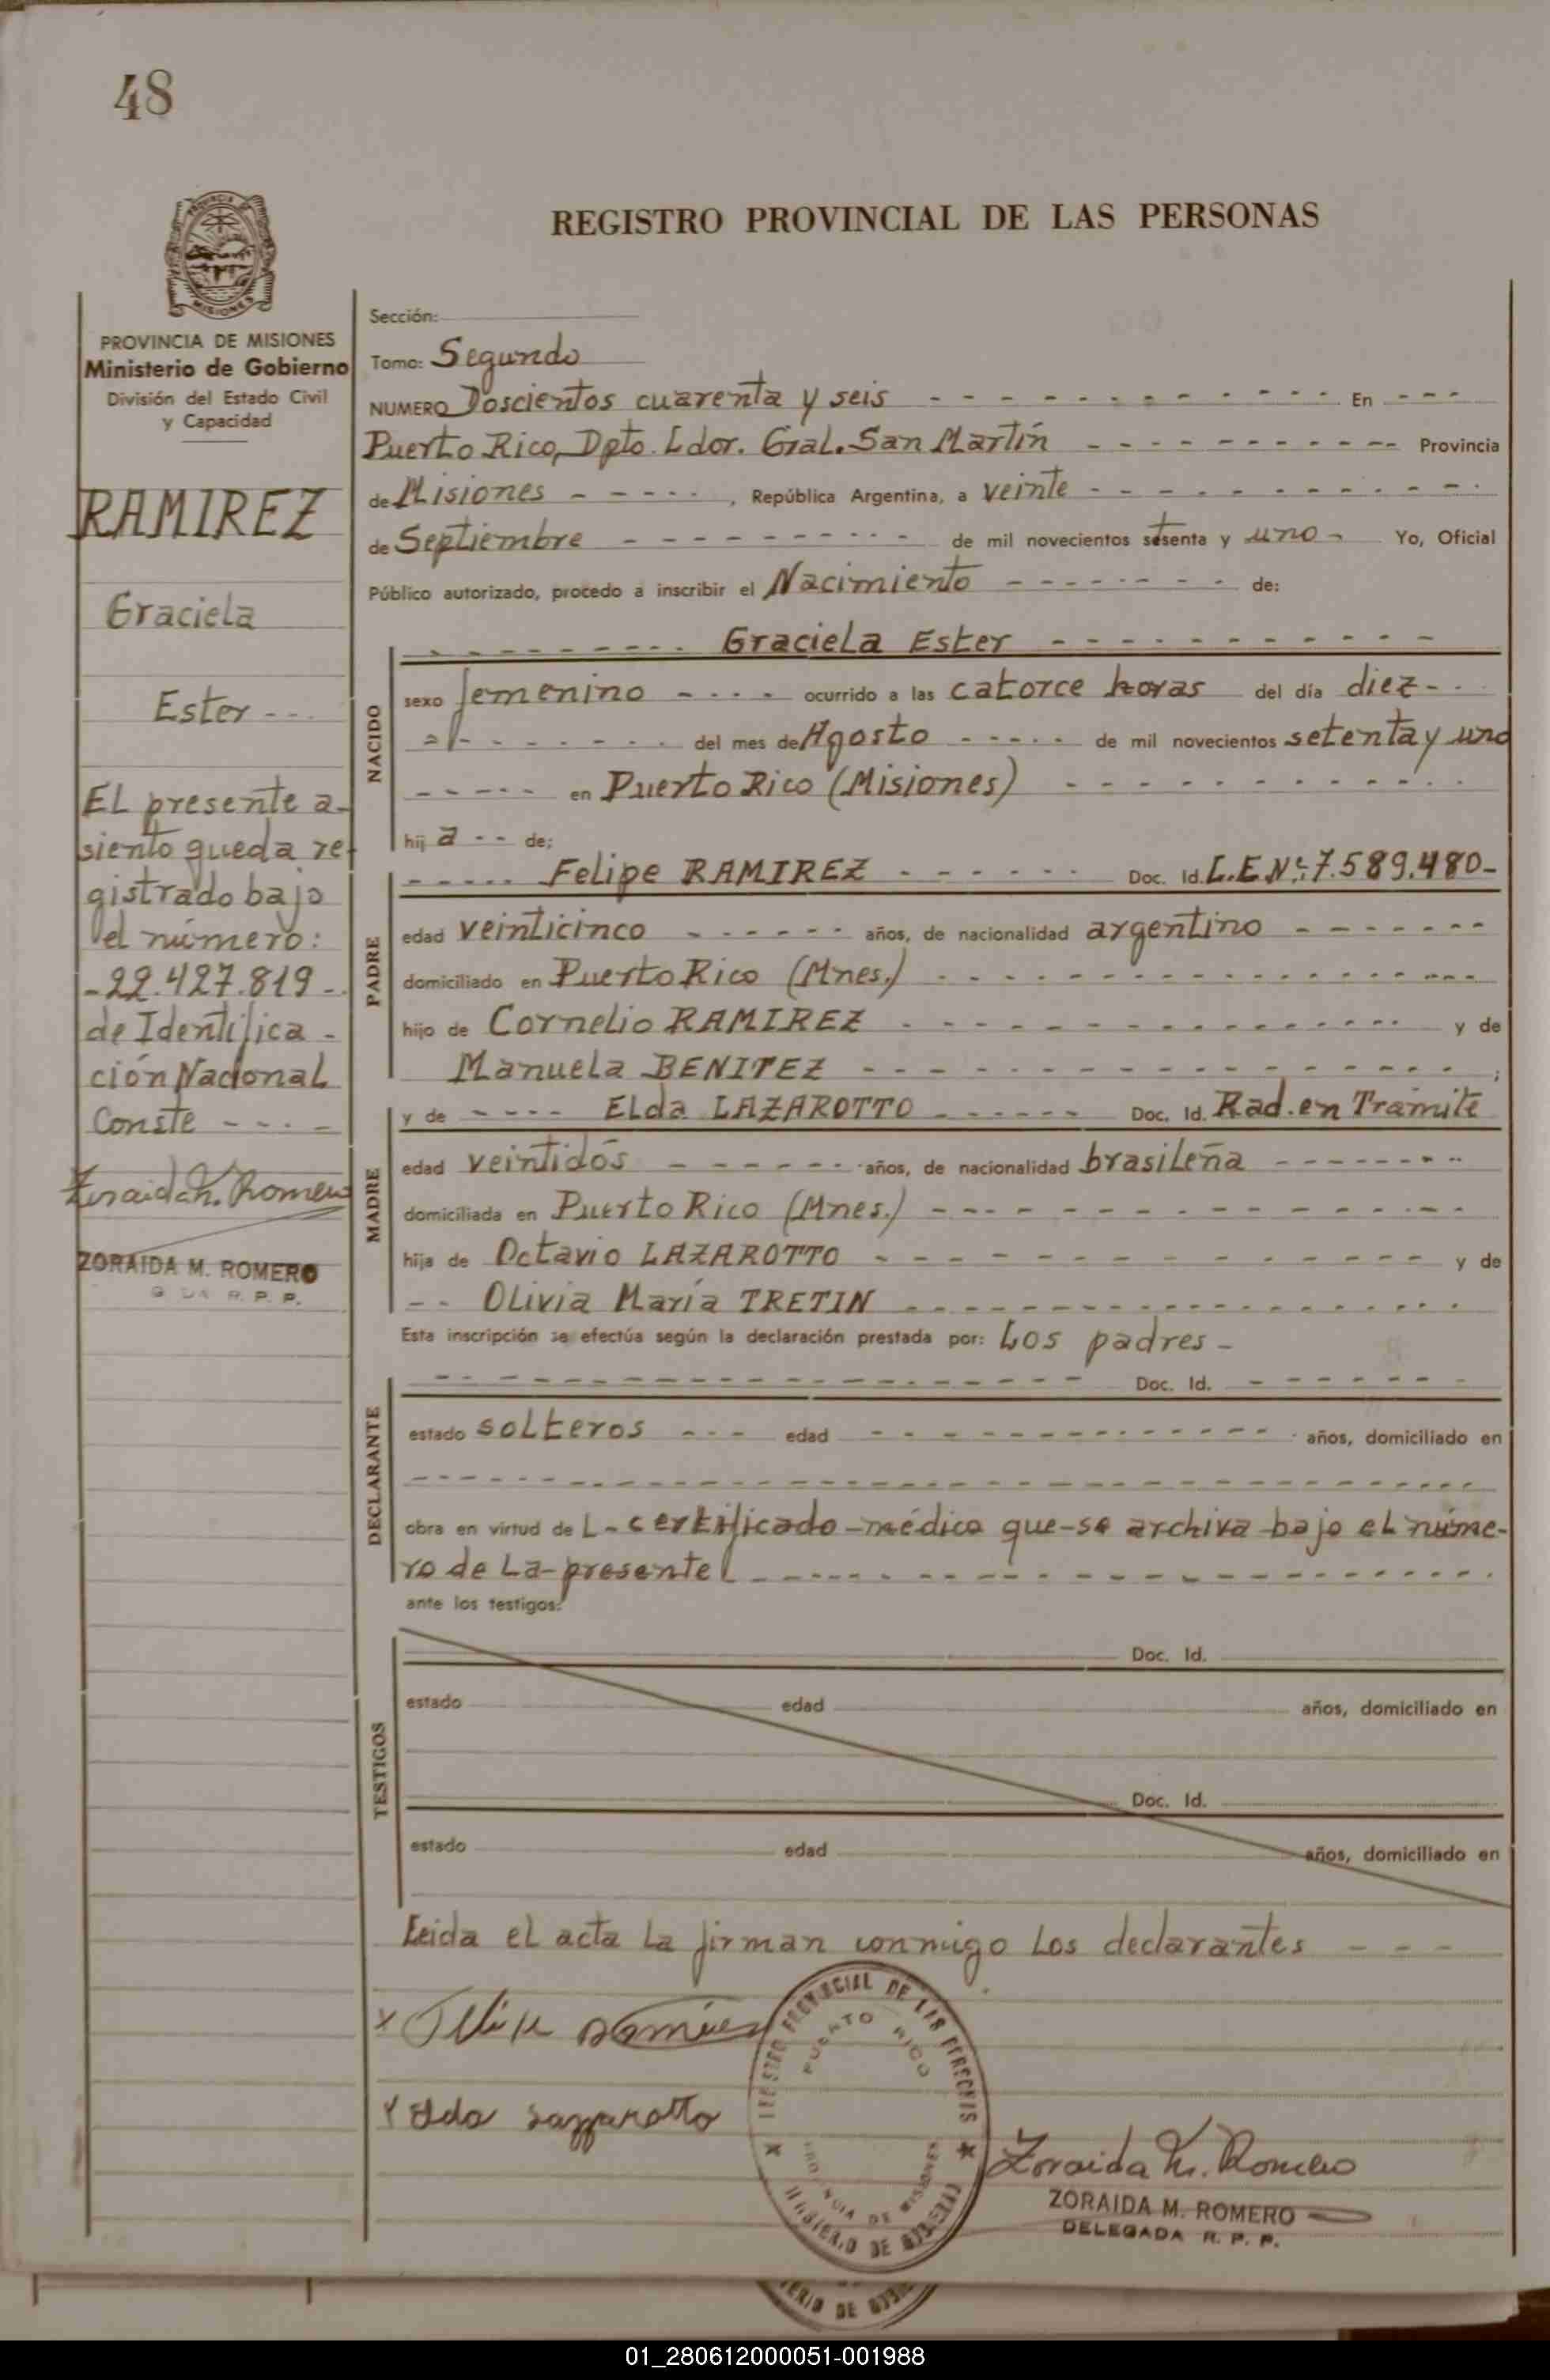 48
PROVINCIA DE MISIONES
REGISTRO PROVINCIAL DE LAS PERSONAS
PROVINCIA DE MISIONES
Ministerio de Gobierno
División del Estado Civil
y Capacidad
RAMIREZ
Graciela
Ester ---
El presente a-
siento queda re-
gistrado bajo
el número:
-22.427.819-
de Identifica-
ción Nacional
Conste ----
Zoraida M. Romero
ZORAIDA M. ROMERO
R. P. P.
Sección:
Tomo: Segundo
NUMERO Doscientos cuarenta y seis - - - - - - - - - - - - En - - -
Puerto Rico, Dpto. Ldor. Gral. San Martín - - - - - - - - - - Provincia
de Misiones - - - - - -, República Argentina, a veinte - - - - - - - - - - -
de Septiembre - - - - - - - - - de mil novecientos setenta y uno - Yo, Oficial
Público autorizado, procedo a inscribir el Nacimiento - - - - - - - - de:
- - - - - - - - - Graciela Ester - - - - - - - - - - -
NACIDO
sexo femenino - - - - ocurrido a las catorce horas del día diez - -
- - - - - - - - del mes de Agosto - - - - - de mil novecientos setenta y uno
- - - - - en Puerto Rico (Misiones) - - - - - - - - - - - -
hij a - - de;
PADRE
- - - - - Felipe RAMIREZ - - - - - - Doc. Id. L.E Nº: 7.589.480-
edad veinticinco - - - - - - años, de nacionalidad argentino - - - - - - -
domiciliado en Puerto Rico (Mnes.) - - - - - - - - - - - - - - - -
hijo de Cornelio RAMIREZ - - - - - - - - - - - - - - y de
Manuela BENITEZ - - - - - - - - - - - - - - - - ;
MADRE
y de - - - - Elda LAZAROTTO - - - - - - Doc. Id. Rad. en Trámite
edad veintidós - - - - - - - años, de nacionalidad brasileña - - - - - - - -
domiciliada en Puerto Rico (Mnes.) - - - - - - - - - - - - - - -
hija de Octavio LAZAROTTO - - - - - - - - - - - - - - y de
- - Olivia María TRETIN - - - - - - - - - - - - - - - -
Esta inscripción se efectúa según la declaración prestada por: Los padres -
DECLARANTE
- - - - - - - - - - - - - - - - - - Doc. Id. - - - - - - -
estado solteros - - - edad - - - - - - - - - - - - años, domiciliado en
- - - - - - - - - - - - - - - - - - - - - - - - - - - -
obra en virtud de L - certificado - médico que - se archiva bajo el núme-
ro de La - presente - - - - - - - - - - - - - - - - - - -
ante los testigos:
TESTIGOS
Doc. Id.
estado edad años, domiciliado en
Doc. Id.
estado edad años, domiciliado en
Leida el acta La firman conmigo Los declarantes - - -
x Felipe Ramírez
x Elda Lazzarotto
REGISTRO PROVINCIAL DE LAS PERSONAS
PUERTO RICO
PROVINCIA DE MISIONES
MINISTERIO DE GOBIERNO
Zoraida M. Romero
ZORAIDA M. ROMERO
DELEGADA R. P. P.
01_280612000051-001988